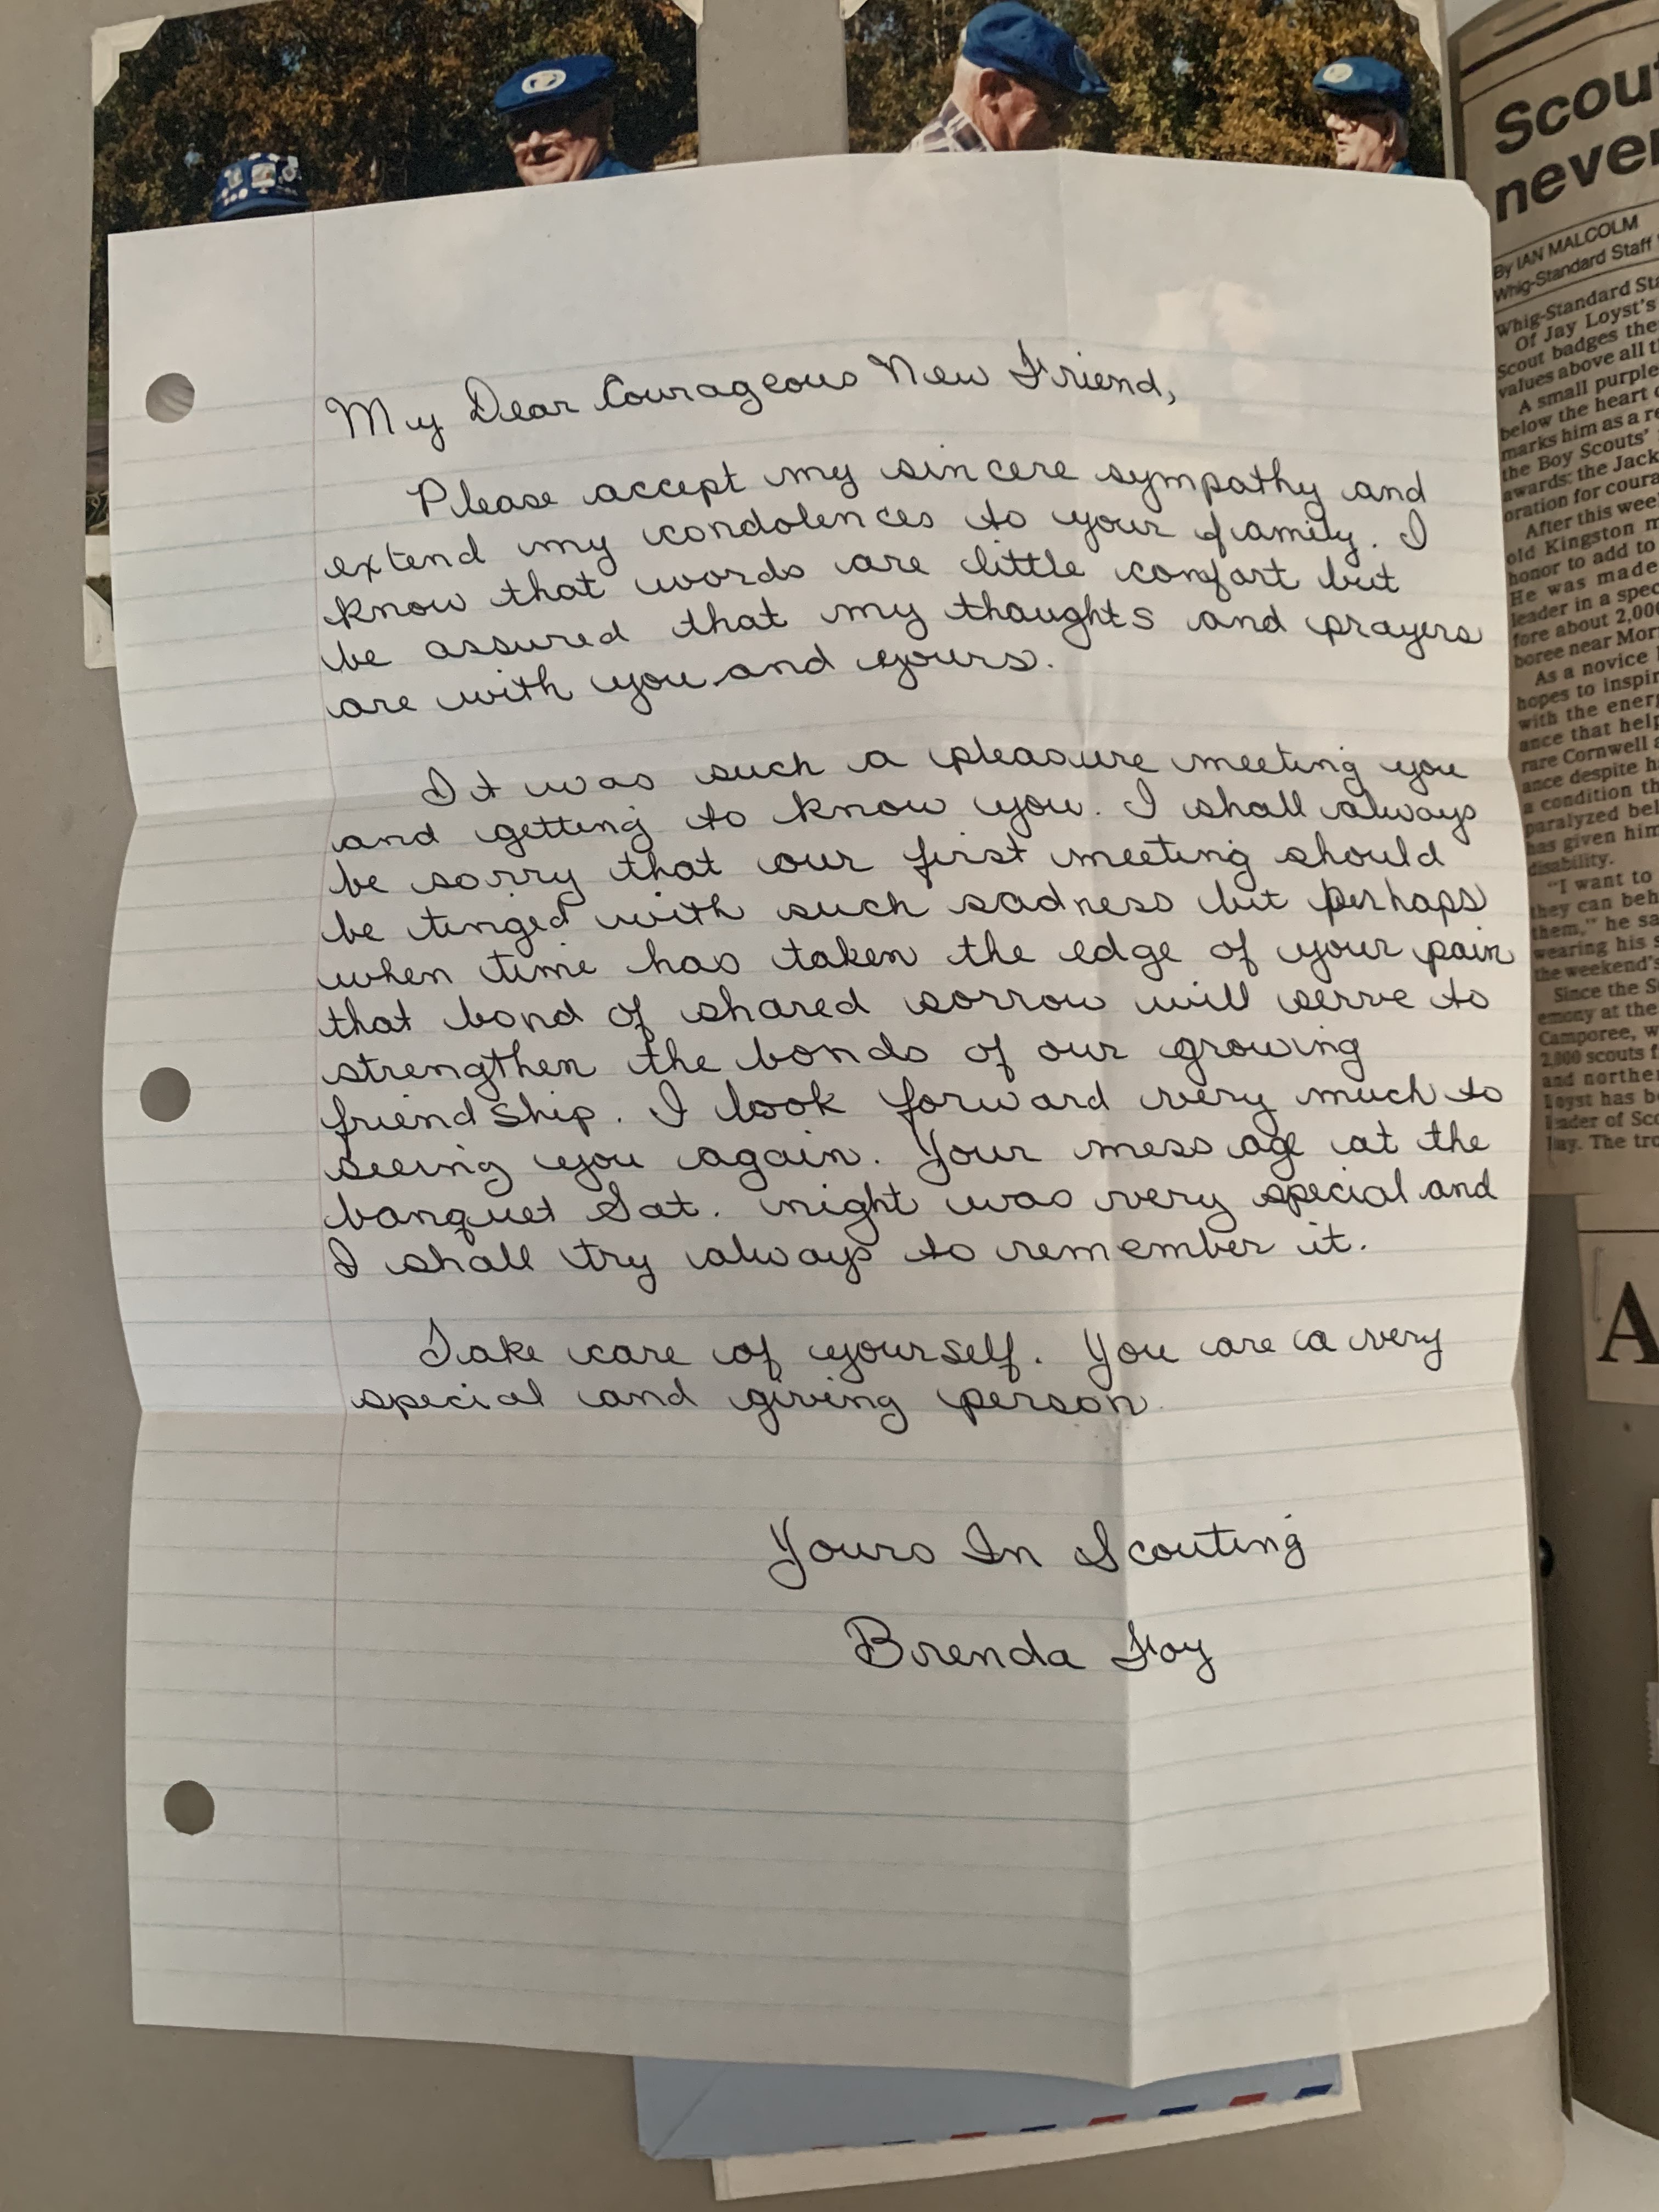 My Dear Courageous New Friend,
Please accept my sincere sympathy and
extend my condolences to your family. I
know that words are little comfort but
be assured that my thoughts and prayers
are with you and yours.
It was such a pleasure meeting you
and getting to know you. I shall always
be sorry that our first meeting should
be tinged with such sadness but perhaps
when time has taken the edge of your pain
that bond of shared sorrow will serve to
strengthen the bonds of our growing
friendship. I look forward very much to
seeing you again. Your message at the
banquet Sat. night was very special and
I shall try always to remember it.
Take care of yourself. You are a very
special and giving person.
Yours In Scouting
Brenda Foy
Scou
never
By IAN MALCOLM
Whig-Standard Staff
Whig-Standard Sta
Of Jay Loyst's
Scout badges the
values above all t
A small purple
below the heart
marks him as a re
the Boy Scouts'
awards: the Jack
oration for coura
After this wee
old Kingston m
honor to add to
He was made
leader in a spec
fore about 2,000
boree near Mor
As a novice
hopes to inspir
with the energ
ance that help
rare Cornwell a
ance despite h
a condition th
paralyzed bel
has given him
disability.
"I want to
they can beh
them," he sa
wearing his s
the weekend's
Since the S
emony at the
Camporee, w
2,000 scouts f
and norther
Loyst has b
leader of Sco
Jay. The tro
A